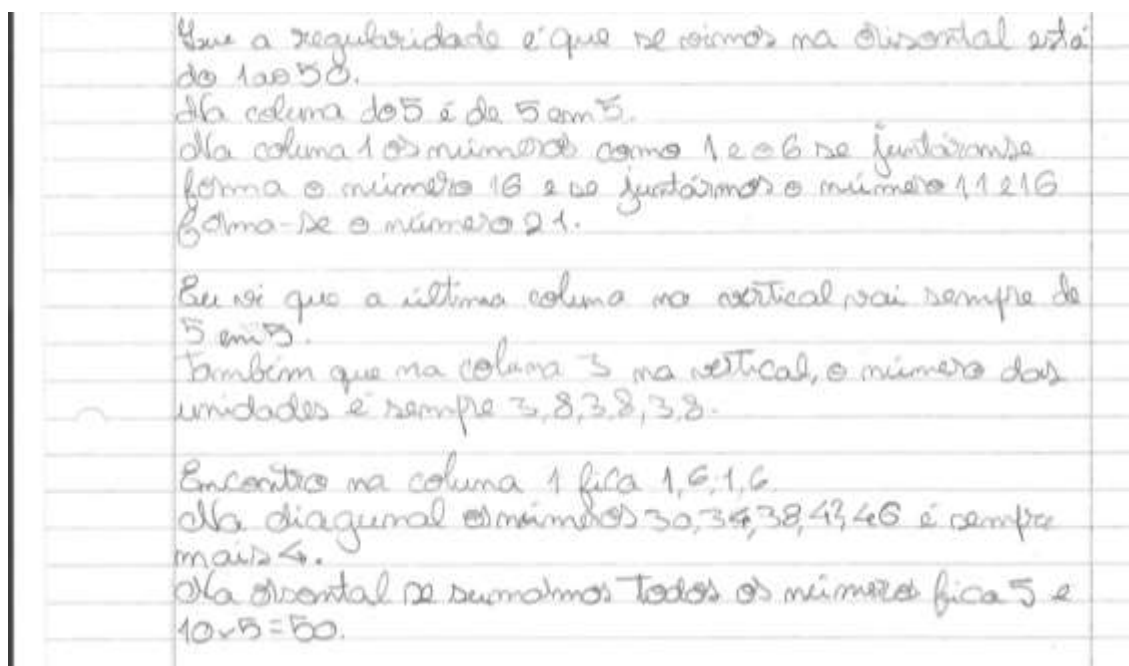 Que a regularidade é que se virmos na orisontal está
do 1 ao 50.
Na coluna do 5 é de 5 em 5.
Na coluna 1 os números como 1 e o 6 se juntáramse
forma o número 16 e se juntármos o número 11 e 16
forma-se o número 21.
Eu vi que a última coluna na vertical, vai sempre de
5 em 5.
Também que na coluna 3 na vertical, o número das
unidades é sempre 3, 8, 3, 8, 3, 8.
Encontro na coluna 1 fica 1, 6, 1, 6.
Na diagunal os números 30, 34, 38, 42, 46 é sempre
mais 4.
Na orisontal se sumarmos todos os números fica 5 e
10x5=50.